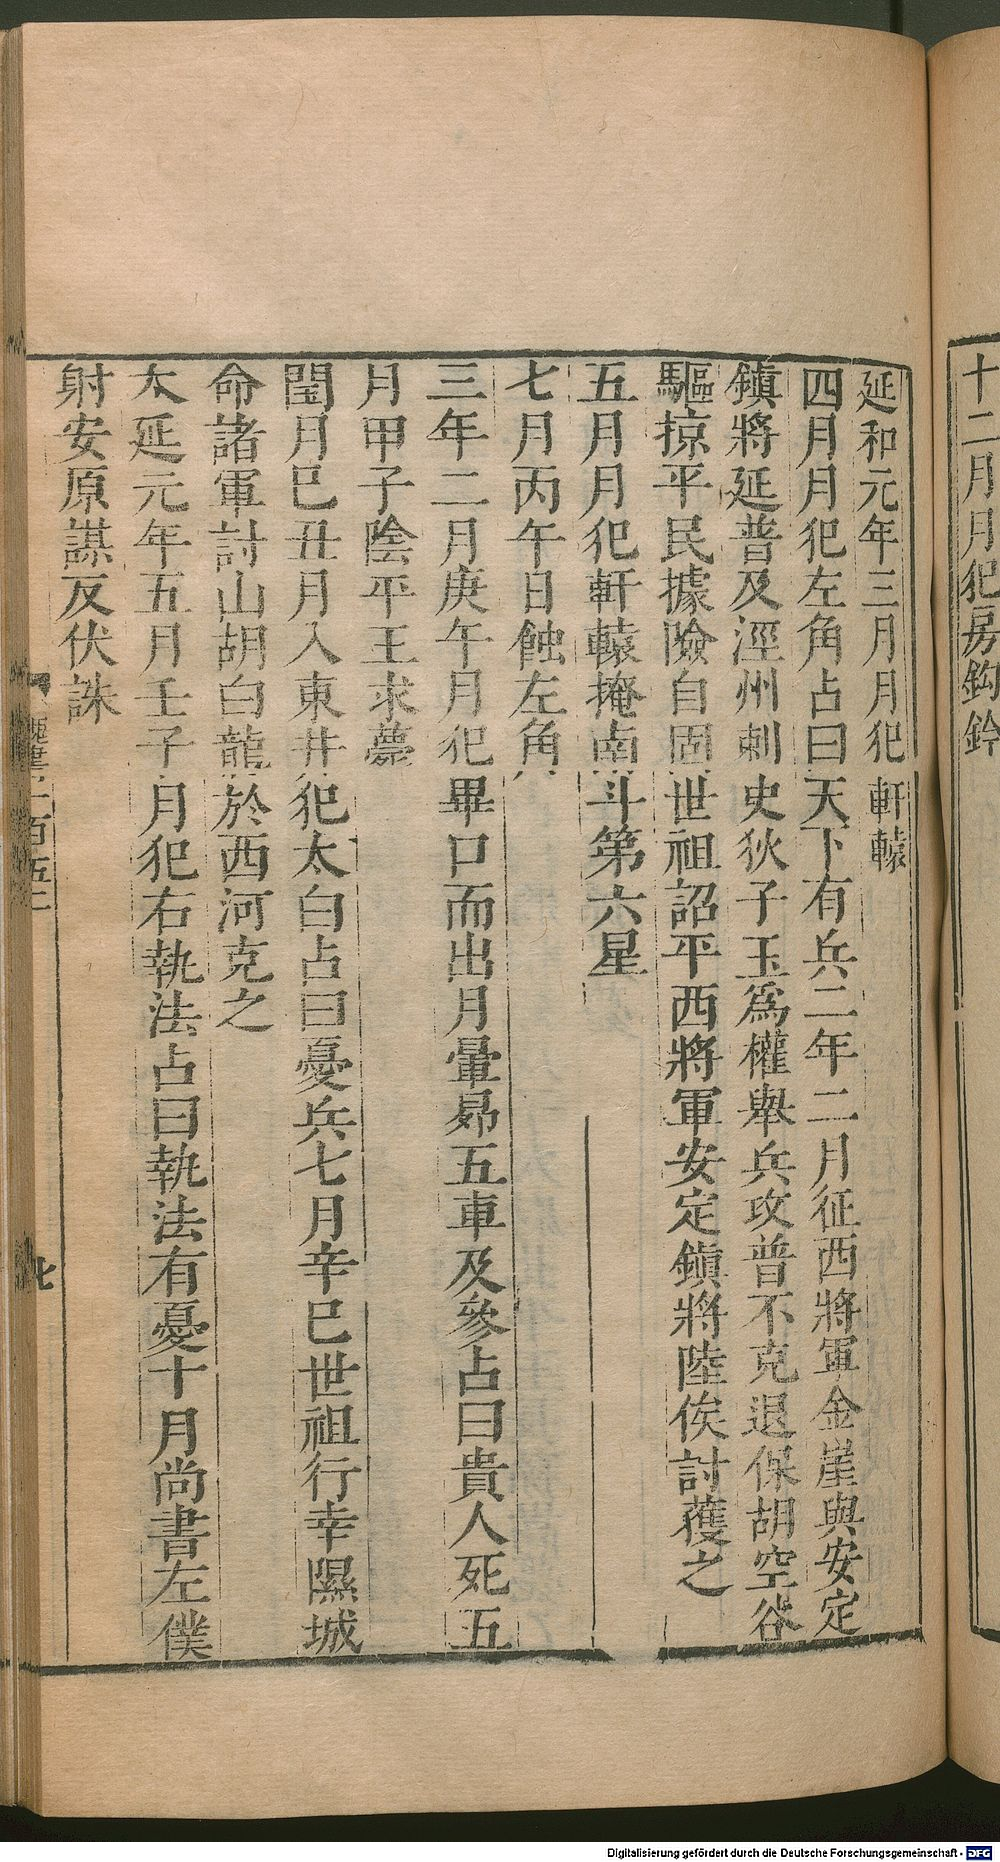 十二月月犯房鈎鈐
延和元年三月月犯軒轅
四月月犯左角占曰天下有兵二年二月征西將軍金崖與安定
鎮將延普及涇州刺史狄子玉爲權舉兵攻普不克退保胡空谷
驅掠平民據險自固世祖詔平西將軍安定鎮將陸俟討蒦之
五月月犯軒轅掩南斗第六星
七月丙午日蝕左角
三年二月庚午月犯畢口而出月暈昴五車及參占曰貴人死五
月甲子陰平王求薨
閏月巳丑月入東井犯太白占曰憂兵七月辛巳世祖行幸隰城
命諸軍討山胡白龍於西河克之
太延元年五月壬子月犯右執法占曰執法有憂十月尚書左僕
射安原謀反伏誅
魏書一百五二
七
Digitalisierung gefördert durch die Deutsche Forschungsgemeinschaft - DFG